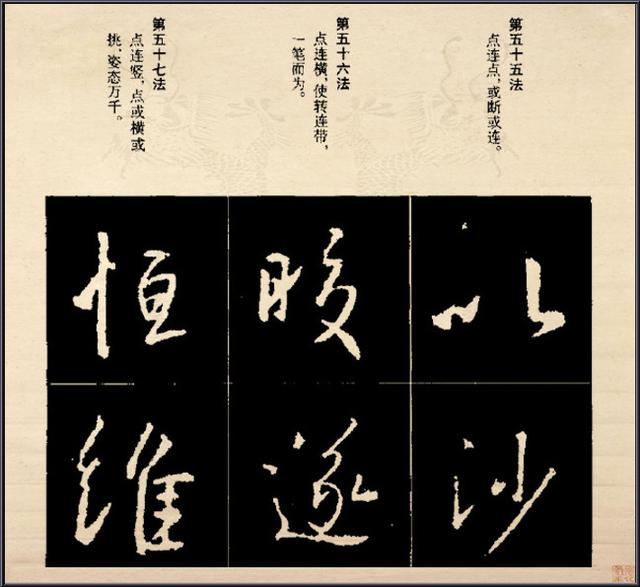 第五十五法
点连点，或断或连。
第五十六法
点连横，使转连带，
一笔而为。
第五十七法
点连竖，点或横或
挑，姿态万千。
以
沙
暖
遂
恒
维